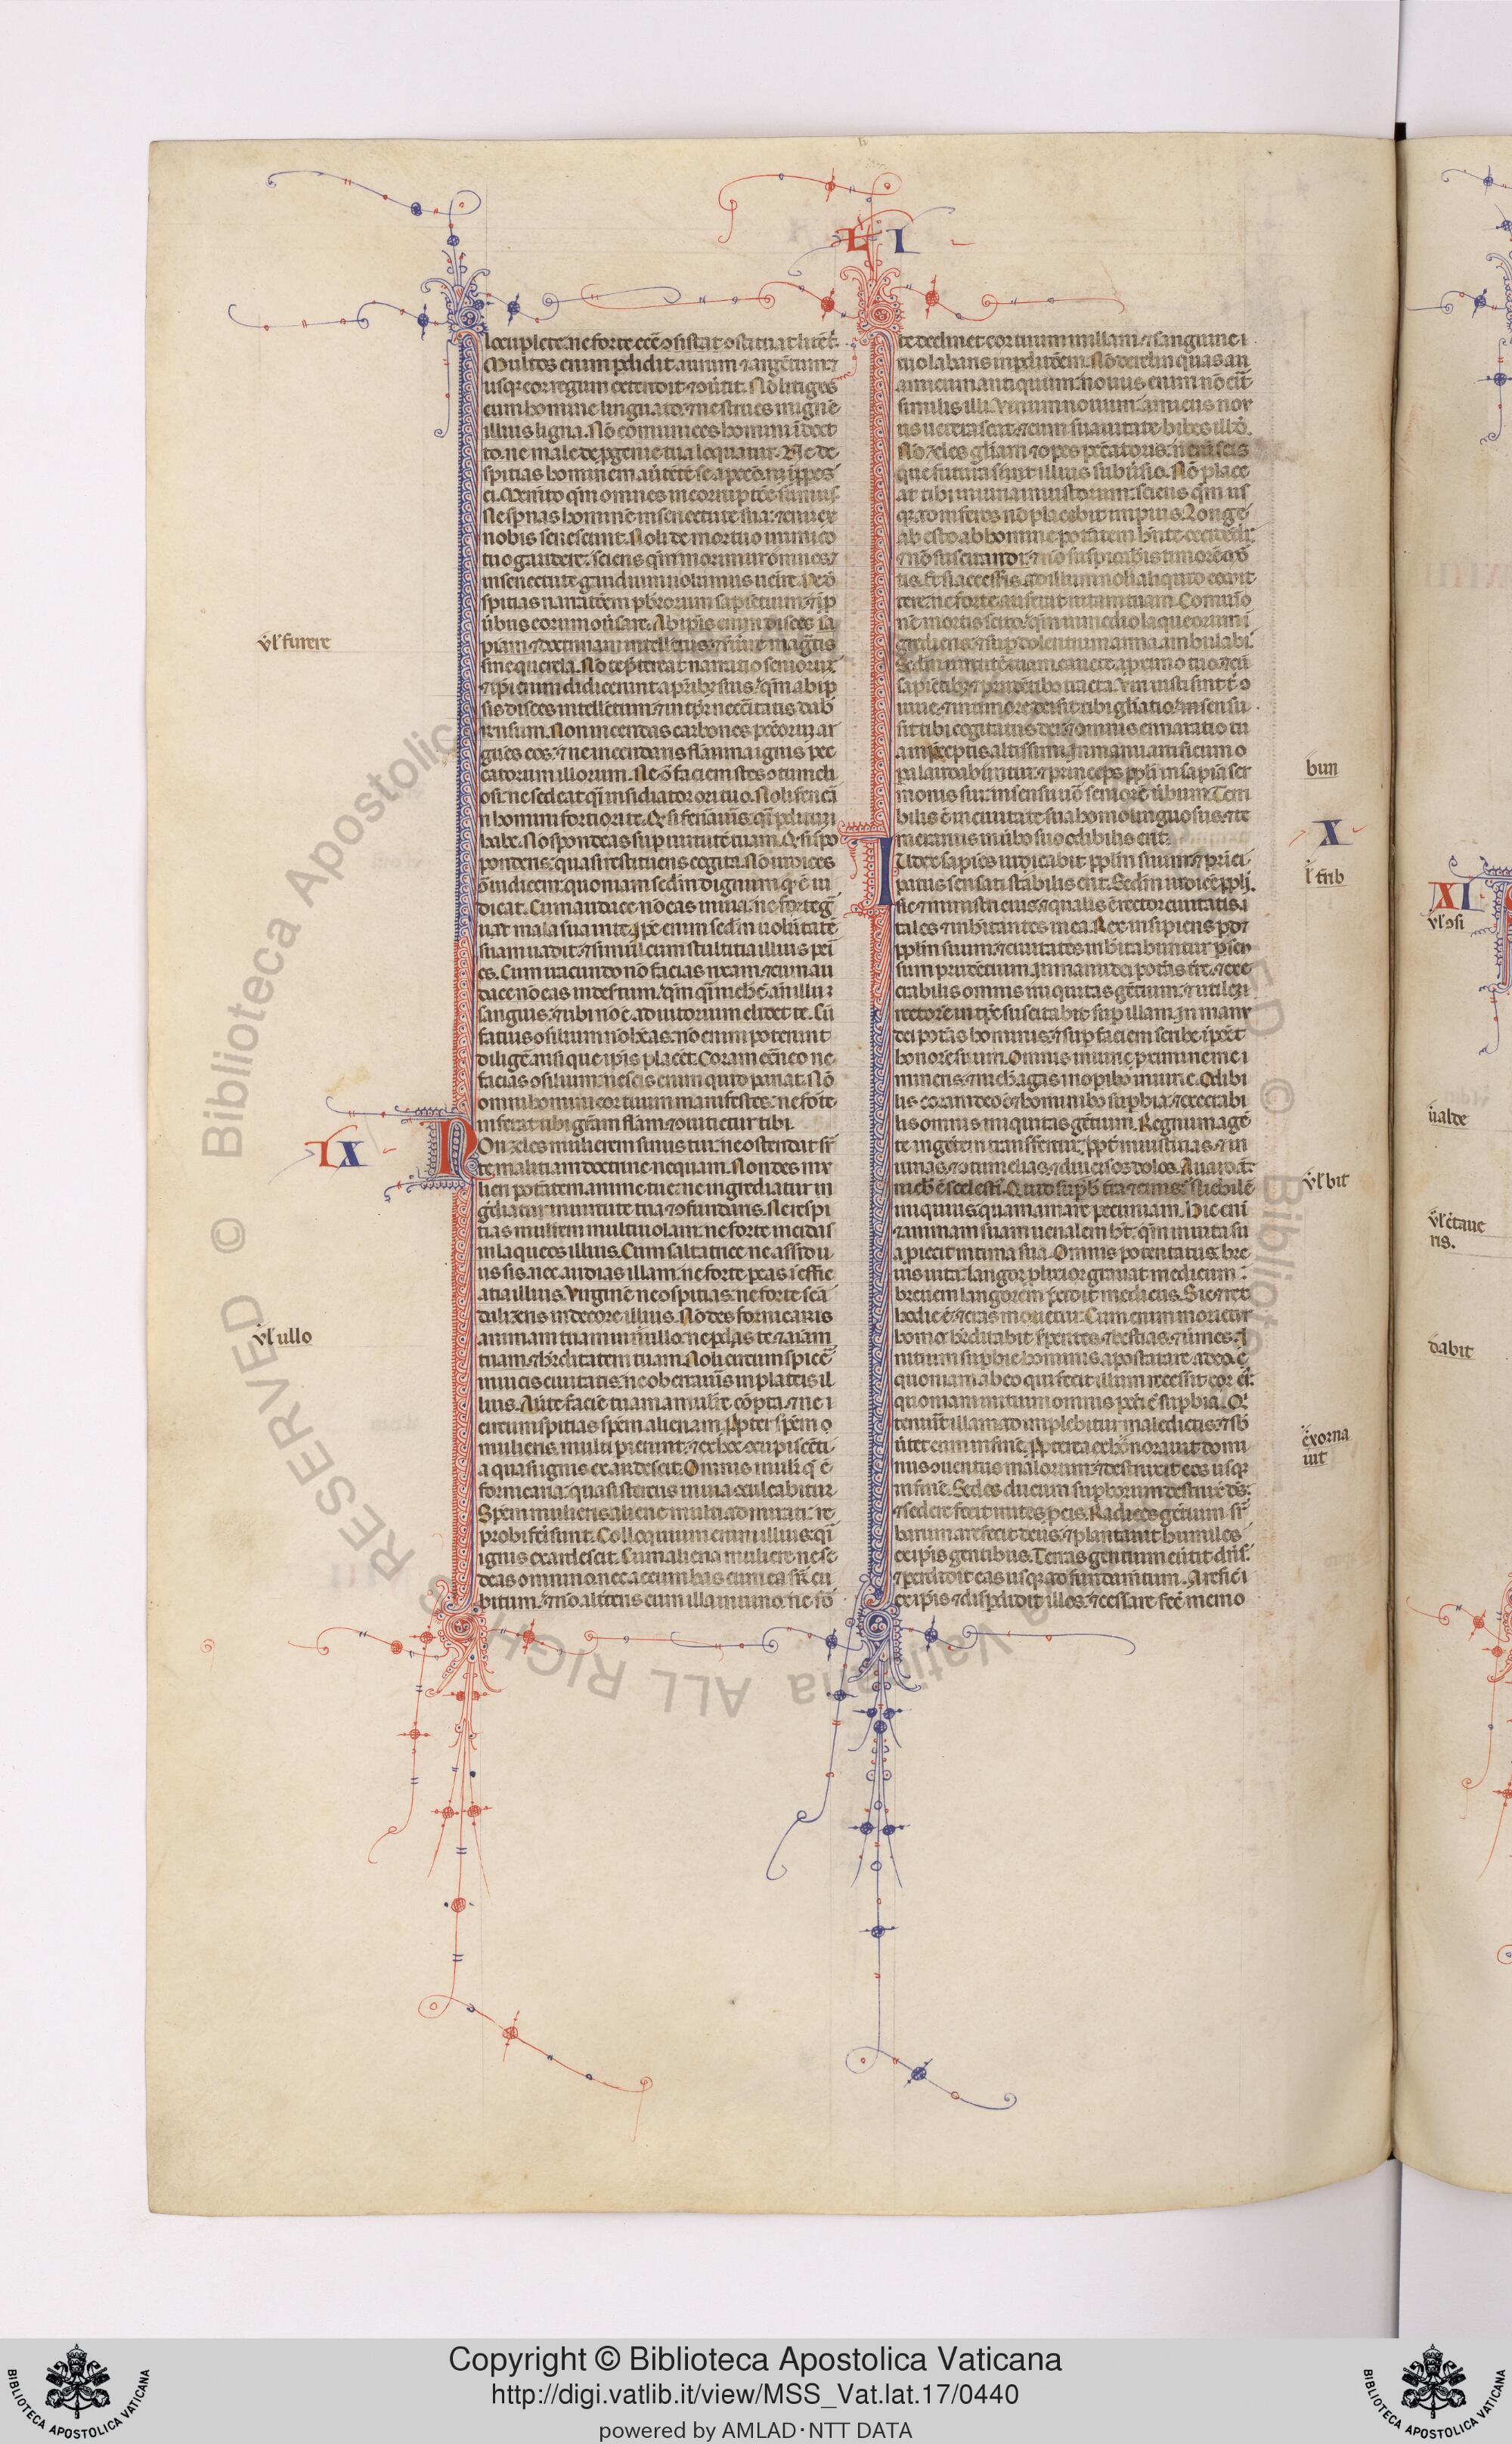 LI
locuplete: ne forte ecõ ɔsistat ɔstituat litē t͛.
Multos enim ꝑdidit aurum ⁊ argētum: ⁊
usq; cor regum extendit ⁊ ɔũtit. Nõ litiges
cum homine linguato: ⁊ ne strues in ignē
illius ligna. Nõ comunices homini ĩdoct
to. ne male de ꝓgenie tua loquatur. Ne de
spicias hominem
ci. Memto qm̃ omnes in correptiõe sumus
Ne sp̃nas hominē in senectute sua: ⁊enim ex
nobis senescunt. Noli de mortuo inimico
tuo gaudere: sciens qm̃ morimur omnes: ⁊
in senectute gaudium uolumus uenire. Ne d̃
spicias narratiõem p̃biterorum sapientium: ⁊ ĩ p̃
ũbiis eorum ɔũsare. Ab ipĩs enim disces sa
piam ⁊ doctrinam intellectus: ⁊ ẽuire magn̄tis
sine querela. Nõ te p̃tereat narratio seniorum
⁊ ip̃i enim didicerunt a pr̃ibȝ suis: qm̃ ab ip
sis disces intellectum: ⁊ in tp̃r necc̃itatis dab̃
rñsum. Non incendas carbones pcc̃orum ar
guens eos: ⁊ ne incendaris flãma ignis pec
catorum illorum. Ne ɔ̃ faciem stes ɔtumeli
osi: ne sedeat q̃i insidiator ori tuo. Noli fenerã
ri homini fortiori te. Q̃ si fen̄aũis. q̃i ꝑditum
habe. Nõ spondeas sup̃ uirtutē tuam. Q̃ si spo
ponderis: quasi restituens cogita. Nõ iudices
ɔ̃ iudicem: quoniam scd̃m qd̃ iustum ẽ iu
dicat. Cum audace nõ eas in uia: ne forte ḡ
uat mala sua in te. Ip̃e enim scd̃m uolũtatẽ
suam uadit: ⁊ simul cum stultitia illius ꝑi
es. Cum iracundo nõ facias rixam: ⁊ cum au
dace nõ eas in desertum: qm̃ q̃i nich̃ ẽ añ illũ
sanguis: ⁊ ubi nõ ẽ adiutorium elidet te. Cũ
fatuis ɔsilium nõ habeas: nõ enim poterunt
diligẽ nisi que ip̃is placēt. Coram ext̃neo ne
facias ɔsilium: nescis enim quid pariat. Nõ
omni homini cor tuum manifestes: ne forte
inferat tibi gr̃am flãm: ⁊ ɔuicietur tibi.
IX
Non zeles mulierem sinus tui: ne ostendat sr̃
te malitiam doctrine nequam. Non des mu
lieri potãtem anime tue: ne ingrediatur in
uirtute tua ⁊ ɔfundaris. Ne respi
cias mulierem multiuolam: ne forte incidas
in laqueos illius. Cum saltatrice ne assidu
us sis. nec audias illam: ne forte pereas ĩ effic
acia illius. Virginē ne ɔspicias: ne forte scã
dalizeris in decore illius. Nõ des fornicariis
animam tuam in nullo: ne ꝑdas te ⁊ aĩam
tuam. ⁊ hr̃editatem tuam. Noli circumspicẽ
in uicis ciuitatis: ne oberraũis in plateis il
lius. Aũte faciē tuam a muliere cõpta: ⁊ ne
circumspicias sp̃em alienam. Ꝓpter sp̃em
mulieris multi ꝑierunt: ⁊ ex hoc ɔcupiscēti
a quasi ignis exardescit. Omnis mulier q̃ ẽ
fornicaria: quasi stercus in uia ɔculcabitur
Sp̃em mulieris aliene multi admirati: re
probi fc̃i sunt. Colloquium enim illius: q̃i
ignis exardescit. Cum aliena muliere ne se
deas omnino. nec accumbas cum ea sr̃ cu
bitum. ⁊ nõ altc̃eris cum illa in uino. ne for̃
te declinet cor tuum in illam: ⁊ sanguine
tuo labaris in ꝑditiõem. Nõ derelinquas am
micum antiquum: nouus enim nõ er̃it
similis illi. Vinum nouum: amicus nou
us ueterascet: ⁊ cum suauitate bibes illud.
Nõ zeles gl̃iam ⁊ opes pcc̃atoris: nõ enim scis
que futura sint illius subũsio. Nõ place
at tibi iniuria iniustorum: sciens qm̃ us
q; ad inferos nõ placebit impius. Longe
abesto ab homine potãtem hñte occidendi:
⁊ nõ suspicaberis timorē mor
tis. Et si accesseris ad illum noli aliquid cõmit
tere: ne forte auferat uitam tuam. Comuniõ
nẽ mortis scito: qm̃ in medio laqueorum ĩ
gredieris: ⁊ sup̃ dolentium arma ambulabis
Scd̃m uirtutē tuam caue te a proximo tuo: ⁊ cũ
sapiẽtibȝ ⁊ prudẽtibȝ tracta. Viri iusti sint t͛ ɔ
uiue. ⁊ in timore dei sit tibi gl̃iatio: ⁊ in sensu
sit tibi cogitatus dei: ⁊ omnis enarratio tu
a in p̃ceptis altissimi. In manu artificum o
pa laudabũntur: ⁊ princeps pp̃li in sapia ser
monis sui: in sensu uõ seniorē ũbum. Terri
bilis ẽ in ciuitate sua homo linguosus: ⁊ te
merarius in ũbo suo odibilis erit.
X
Iudex sapiēs iudicabit pp̃lm suum: ⁊ prĩci
patus sensati stabilis erit. Scd̃m iudicē pp̃li.
sic ⁊ ministri eius: ⁊ qualis ẽ rector ciuitatis. ĩ
tales ⁊ inhitantes in ea. Rex insipiens ꝑdet
pp̃lm suum: ⁊ ciuitates inhitabuntur ꝑ sen
sum prudētium. In manu dei potãs tr̃e. ⁊ exe
crabilis omnis iniquitas gētium: ⁊ utilem
rectorē in tp̃e suscitabit sup̃ illam. In manu
dei potãs hominis: ⁊ sup̃ faciem scribe ĩpõet
honorē suum. Omnis iniurie proximi ne me
mineris: ⁊ nich̃ agas in opibȝ iniurie. Odibi
lis coram deo ẽ ⁊ hominibȝ sup̃bia: ⁊ execrabi
lis omnis iniquitas gētium. Regnum a gē
te in gētem transfertur: ꝓpt̃ iniusticias: ⁊ in
iurias. ⁊ ɔtumelias. ⁊ diuersos dolos. Auaro aũt
nich̃ ẽ scelesti. Quid sup̃b̃ t̃ra ⁊ cinis: nich̃ ẽ
iniquius: quam amare pecuniam. Hic eni
⁊ animam suam uenalem h̃t: qm̃ in uita su
a ꝓiecit intima sua. Omnis potentatus: bre
uis uita: langor plixior grauat medicum:
breuem langorem p̃cidit medicus. Sic ⁊ rex
hodie ẽ: ⁊ cras morietur. Cum enim morietur
homo: hr̃ditabit serpentes: ⁊ bestias: ⁊ ũmes. Ĩ
nitium sup̃bie hominis apostatare a deo: ẽ
quoniam ab eo qui fecit illum recessit cor ei͛:
quoniam initium omnis pcc̃i ẽ sup̃bia. Q͛
tenuit illam: adimplebitur maledictis: ⁊ sb̃
ũtet eum in finē. Ꝓpterea exhonorauit domi
nus ɔuentus malorum: ⁊ destruxit eos usq;
in finē. Sedes ducum sup̃borum destruxit ds̃:
⁊ sedere fecit mites ꝑ eis. Radices gētium su
barum arefecit deus: ⁊ plantauit humiles
ex ip̃is gentibus. Terras gentium eũtit dñs:
⁊ ꝑdidit eas usq; ad fundam̃tum. Arefecit
ex ip̃is ⁊ dispdidit illos: ⁊ cessare fec̃ memo
ul̃ furere
ul̃ ullo
bun
l̃ tr̃ib
ul̃ bit
exorna
uit
XI
ul̃ ɔsi
ualde
dabit
Copyright © Biblioteca Apostolica Vaticana
http://digi.vatlib.it/view/MSS_Vat.lat.17/0440
powered by AMLAD·NTT DATA
BIBLIOTECA APOSTOLICA VATICANA
BIBLIOTECA APOSTOLICA VATICANA